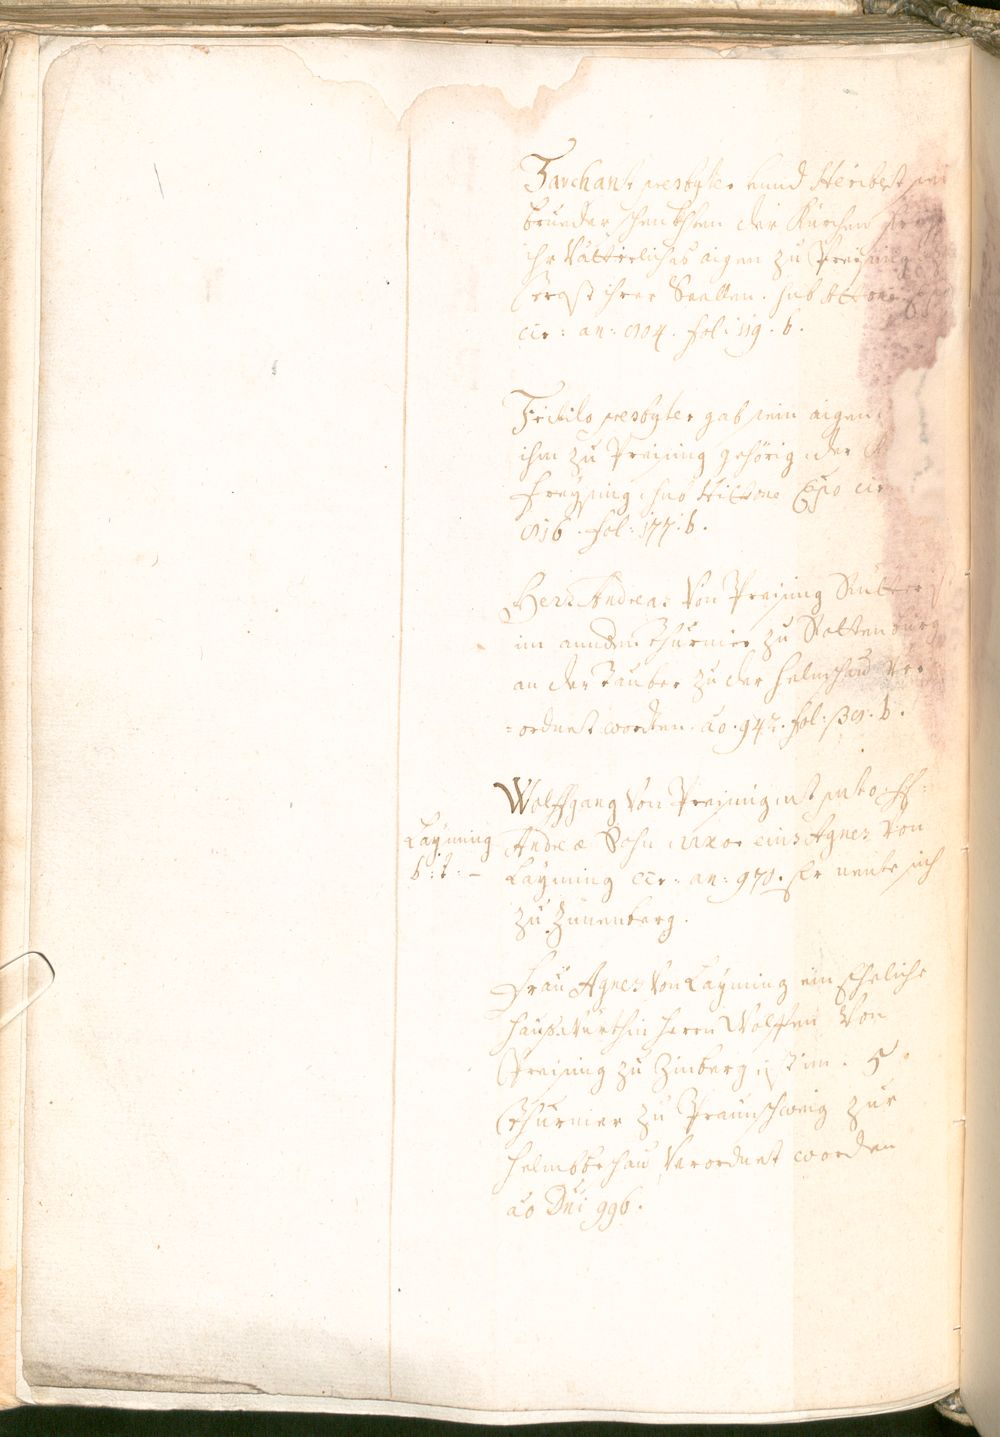 Tarchant presbyter vnnd Heribest sein
brueder schenkhten der Kürchen
ihr Vätterliches aigen zu Preising
trost ihrer Seallen. sub Attone
cir: an: 804. fol: 119. b.
Fritilo presbyter gab sein aigen
ihm zu Preising gehörig der
Freysing sub Hittone Epo cir
816. fol: 177. b.
Herr Andreas Von Preising Rütter ist
im anndern Thurnier zu Rottenburg
an der Tauber zu der helmschau Ver
=ordnet worden. ao. 942. fol: b.
Wolffgang Von Preising ist
Layming
Andreæ Sohn uxor eius Agnes Von
b: t: –
Layming cir: an: 970. Er nente sich
zu Zünenberg.
Frau Agnes Von Layming ein Eheliche
haußwürthin herrn Wolffen Von
Preising zu Zinberg ist im. 5
Thurnier zu Praunschweig zur
helmbschau Verordnet worden
ao Dni 996.